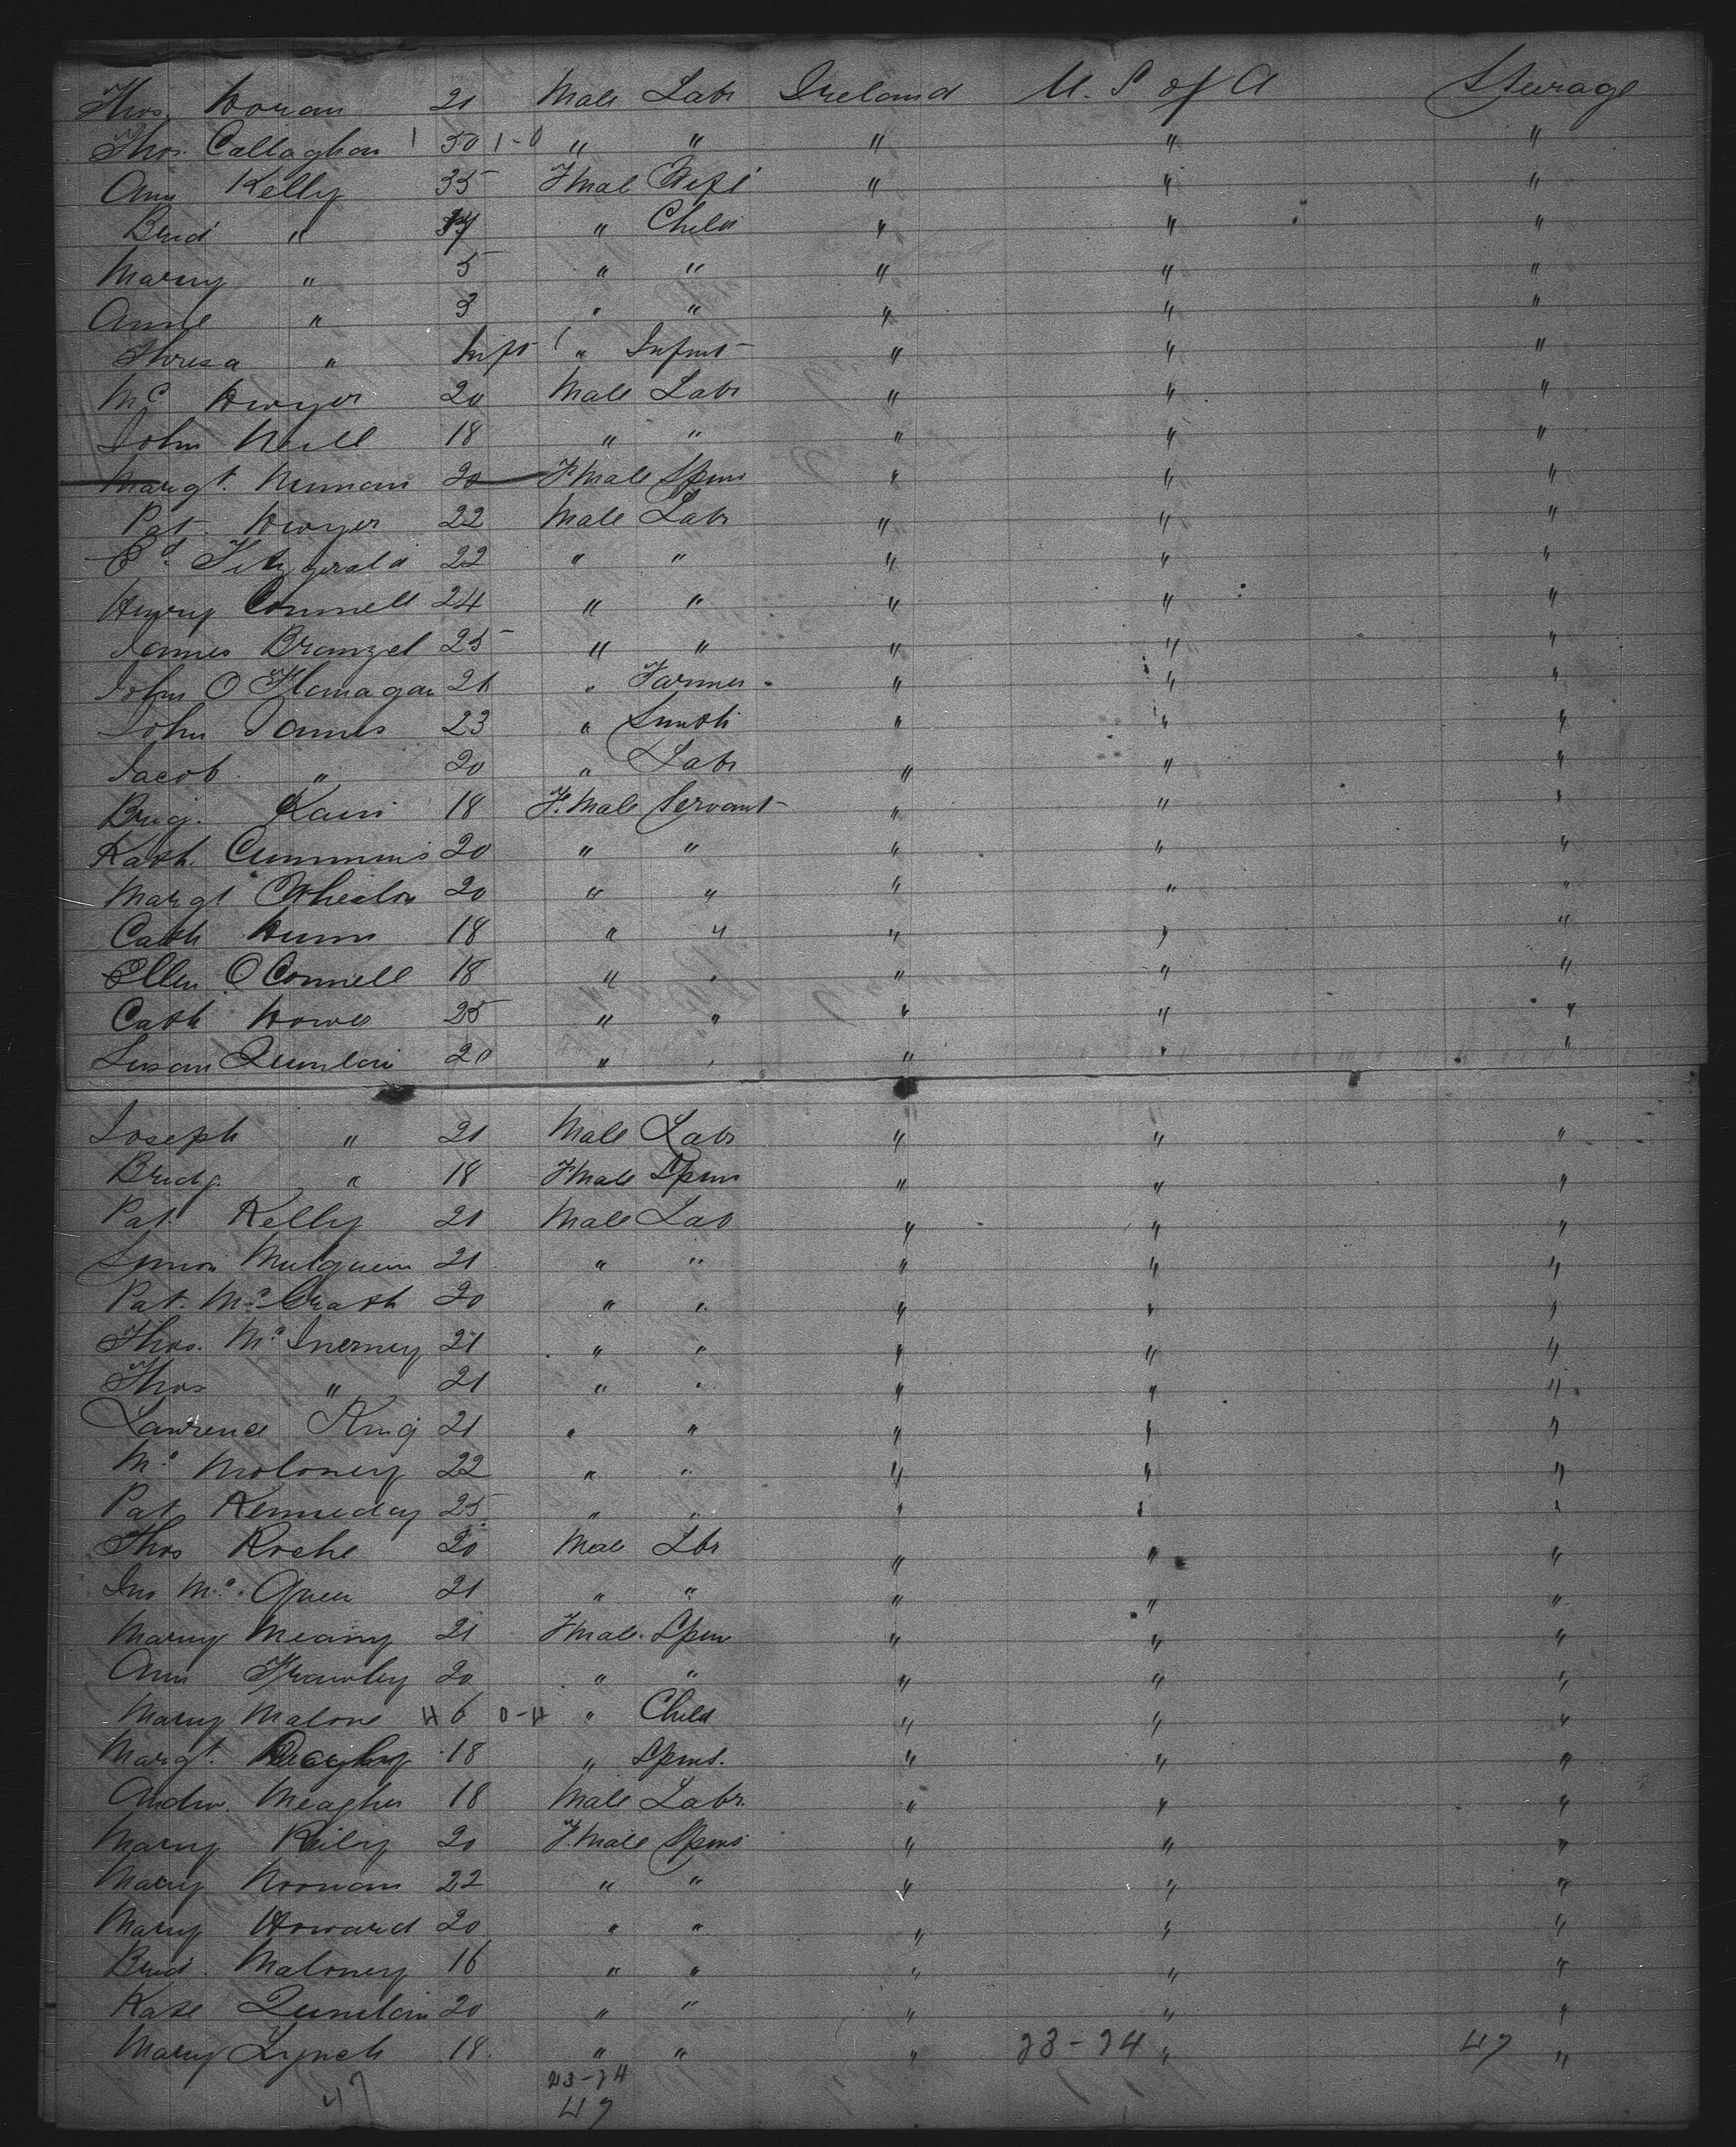 Thos. Horan 21 Male Labr Ireland U. S of A Steerage
Thos. Callaghan 1 50 1-0 " " " " "
Ann Kelly 35 Fmal Wife " " "
Brid " " Child " " "
Mary " 5 " " " " "
Anne " 3 " " " " "
Thresa " Inft " Infnt " " "
Mc Dwyer 20 Male Labr " " "
John Neill 18 " " " " "
Margt. 20 Fmale Spins " " "
Pat Dwyer 22 Male Labr " " "
Ed. Fitzgerald 22 " " " " "
Henry Connell 24 " " " " "
James 25 " " " " "
John O Flanagan 21 " Farmer " " "
John James 23 " Smith " " "
Jacob " 20 " Labr " " "
Brig. Kain 18 F.Male Servant " " "
Kath. Cummins 20 " " " " "
Margt Whealon 20 " " " " "
Cath Dunn 18 " " " " "
Ellen O Connell 18 " " " " "
Cath Howes 25 " " " " "
Susan Quinlan 20 " " " " "
Joseph " 21 Male Labr " " "
Bridg. " 18 Fmale Spins " " "
Pat Kelly 21 Male Lab " " "
Simon Mulqueen 21 " " " " "
Pat. Mc Grath 20 " " " " "
Thos. Mc Inerney 21 " " " " "
Thos " 21 " " " " "
Lawrence King 21 " " " " "
Mc Moloney 22 " " " " "
Pat Kenneday 25 " " " " "
Thos Roche 20 Male Lbr " " "
Jno Mc. 21 " " " " "
Mary Meany 21 Fmale Spin " " "
Ann Frawley 20 " " " " "
Mary Malone 4 6 0-4 " Child " " "
Margt. 18 " Spins. " " "
Andw. Meagher 18 Male Labr. " " "
Mary Reily 20 F.Male Spins " " "
Mary Noonan 22 " " " " "
Mary Howard 20 " " " " "
Brid. Maloney 16 " " " " "
Kate Quinlan 20 " " " " "
Mary Lynch 18 " " " 23-24 " 47 "
23-24
47 47